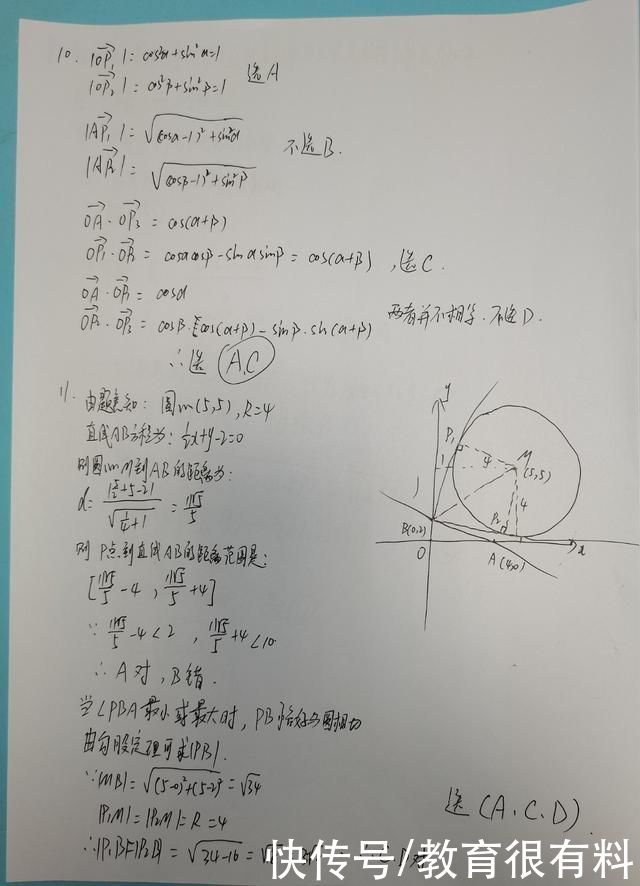 10. |OP₁| = cos²α+sin²α=1
|OP₂| = cos²β+sin²β=1 选A
|AP₁| = √(cosα-1)²+sin²α
|AP₂| = √(cosβ-1)²+sin²β 不选B.
OA·OP₃ = cos(α+β)
OP₁·OP₂ = cosαcosβ-sinαsinβ = cos(α+β) ,选C.
OA·OP₁ = cosα
OP₂·OP₃ = cosβ·cos(α+β)-sinβ·sin(α+β) 两者并不相等.不选D.
∴选 A,C
11. 由题意知: 圆M(5,5),R=4
直线AB方程为: ½x+y-2=0
则圆心M到AB的距离为:
d= |5/2+5-2| / √(1/4+1) = 11√5/5
则P点到直线AB的距离范围是:
[11√5/5-4 , 11√5/5+4]
∵ 11√5/5-4<2 , 11√5/5+4<10
∴A对,B错.
当∠PBA最小或最大时,PB恰好与圆相切
由勾股定理可求|PB|.
∵|MB|=√(5-0)²+(5-2)²=√34
|P₁M|=|P₂M|=R=4
∴|P₁B|=|P₂B|=√34-16=
选(A.C.D)
y
P₁
4
M
(5,5)
4
P₂
B(0,2)
O
A(4,0)
x
快传号/教育很有料